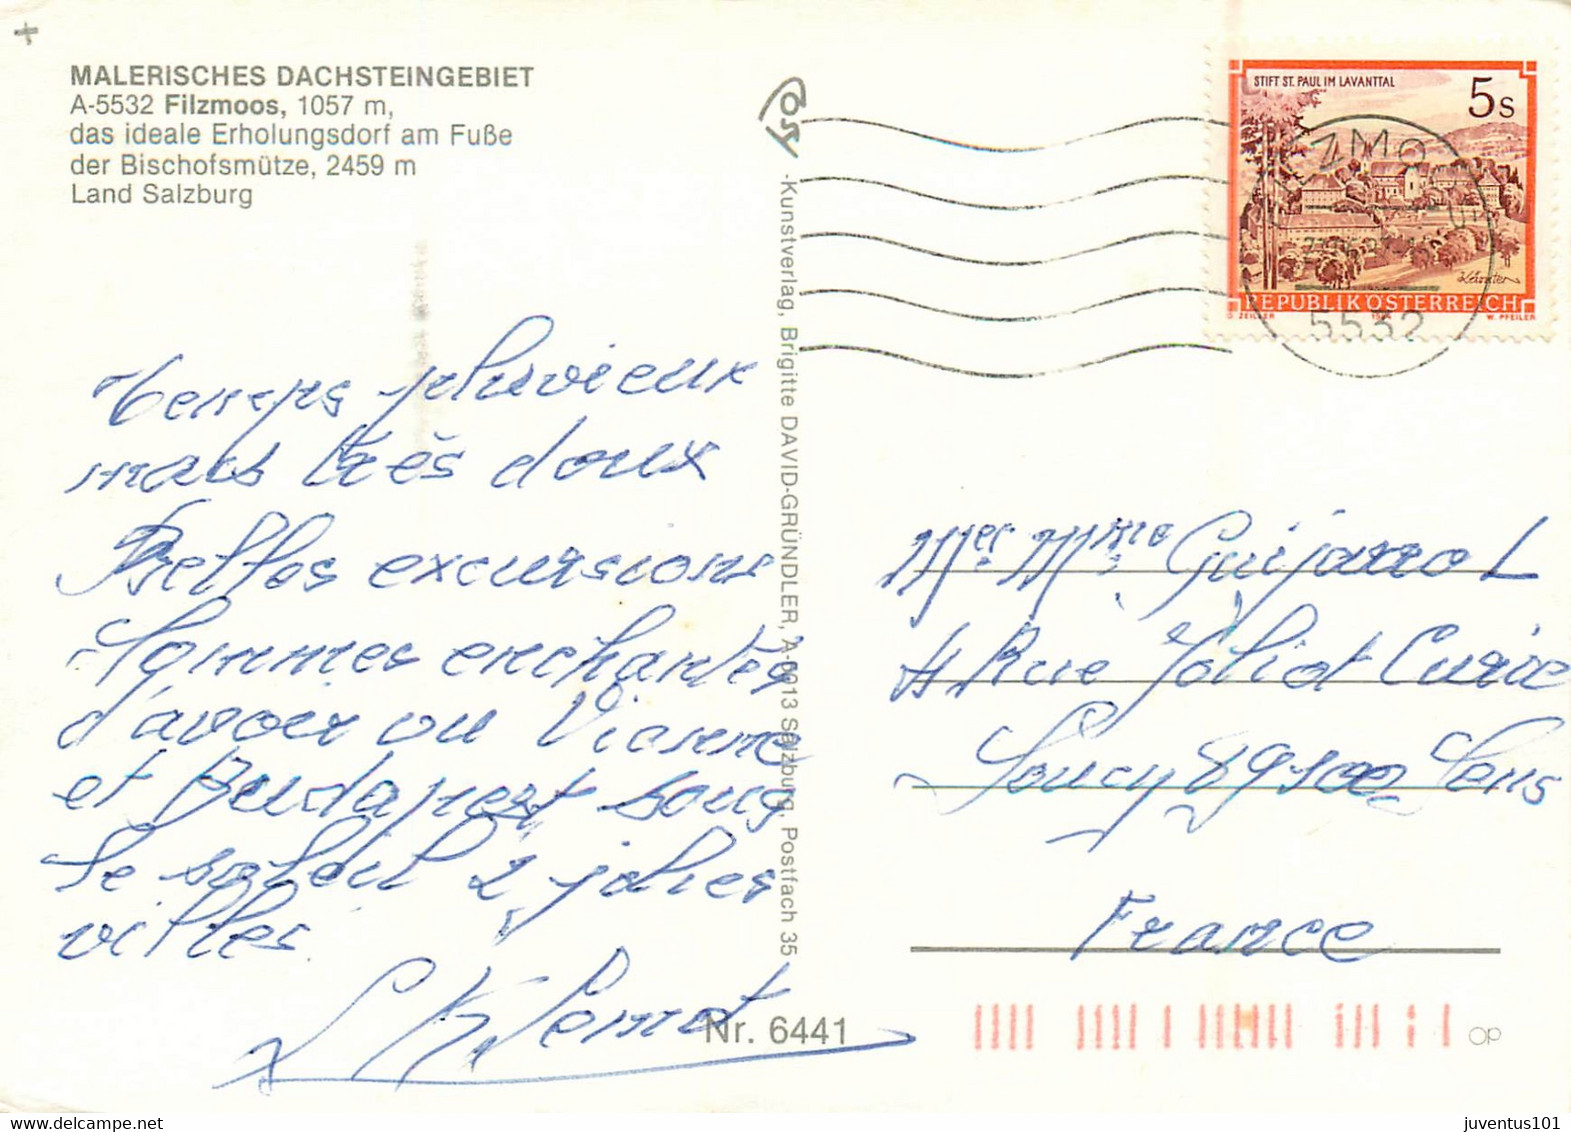 MALERISCHES DACHSTEINGEBIET
A-5532 Filzmoos, 1057 m,
das ideale Erholungsdorf am Fuße
der Bischofsmütze, 2459 m
Land Salzburg
Temps pluvieux
mais très doux
Belles excursions
Sommes enchantés
d'avoir vu Vienne
et Budapest sous
le soleil 2 jolies
villes
Cosy
-Kunstverlag, Brigitte DAVID-GRÜNDLER, A-5013 Salzburg, Postfach 35
Nr. 6441
STIFT ST. PAUL IM LAVANTTAL
5s
REPUBLIK ÖSTERREICH
W. PFEILER
FILZMOOS
5532
Mer Mme Guijarro L
4 Rue Joliot Curie
Soucy 89100 Sens
France
OP
juventus101